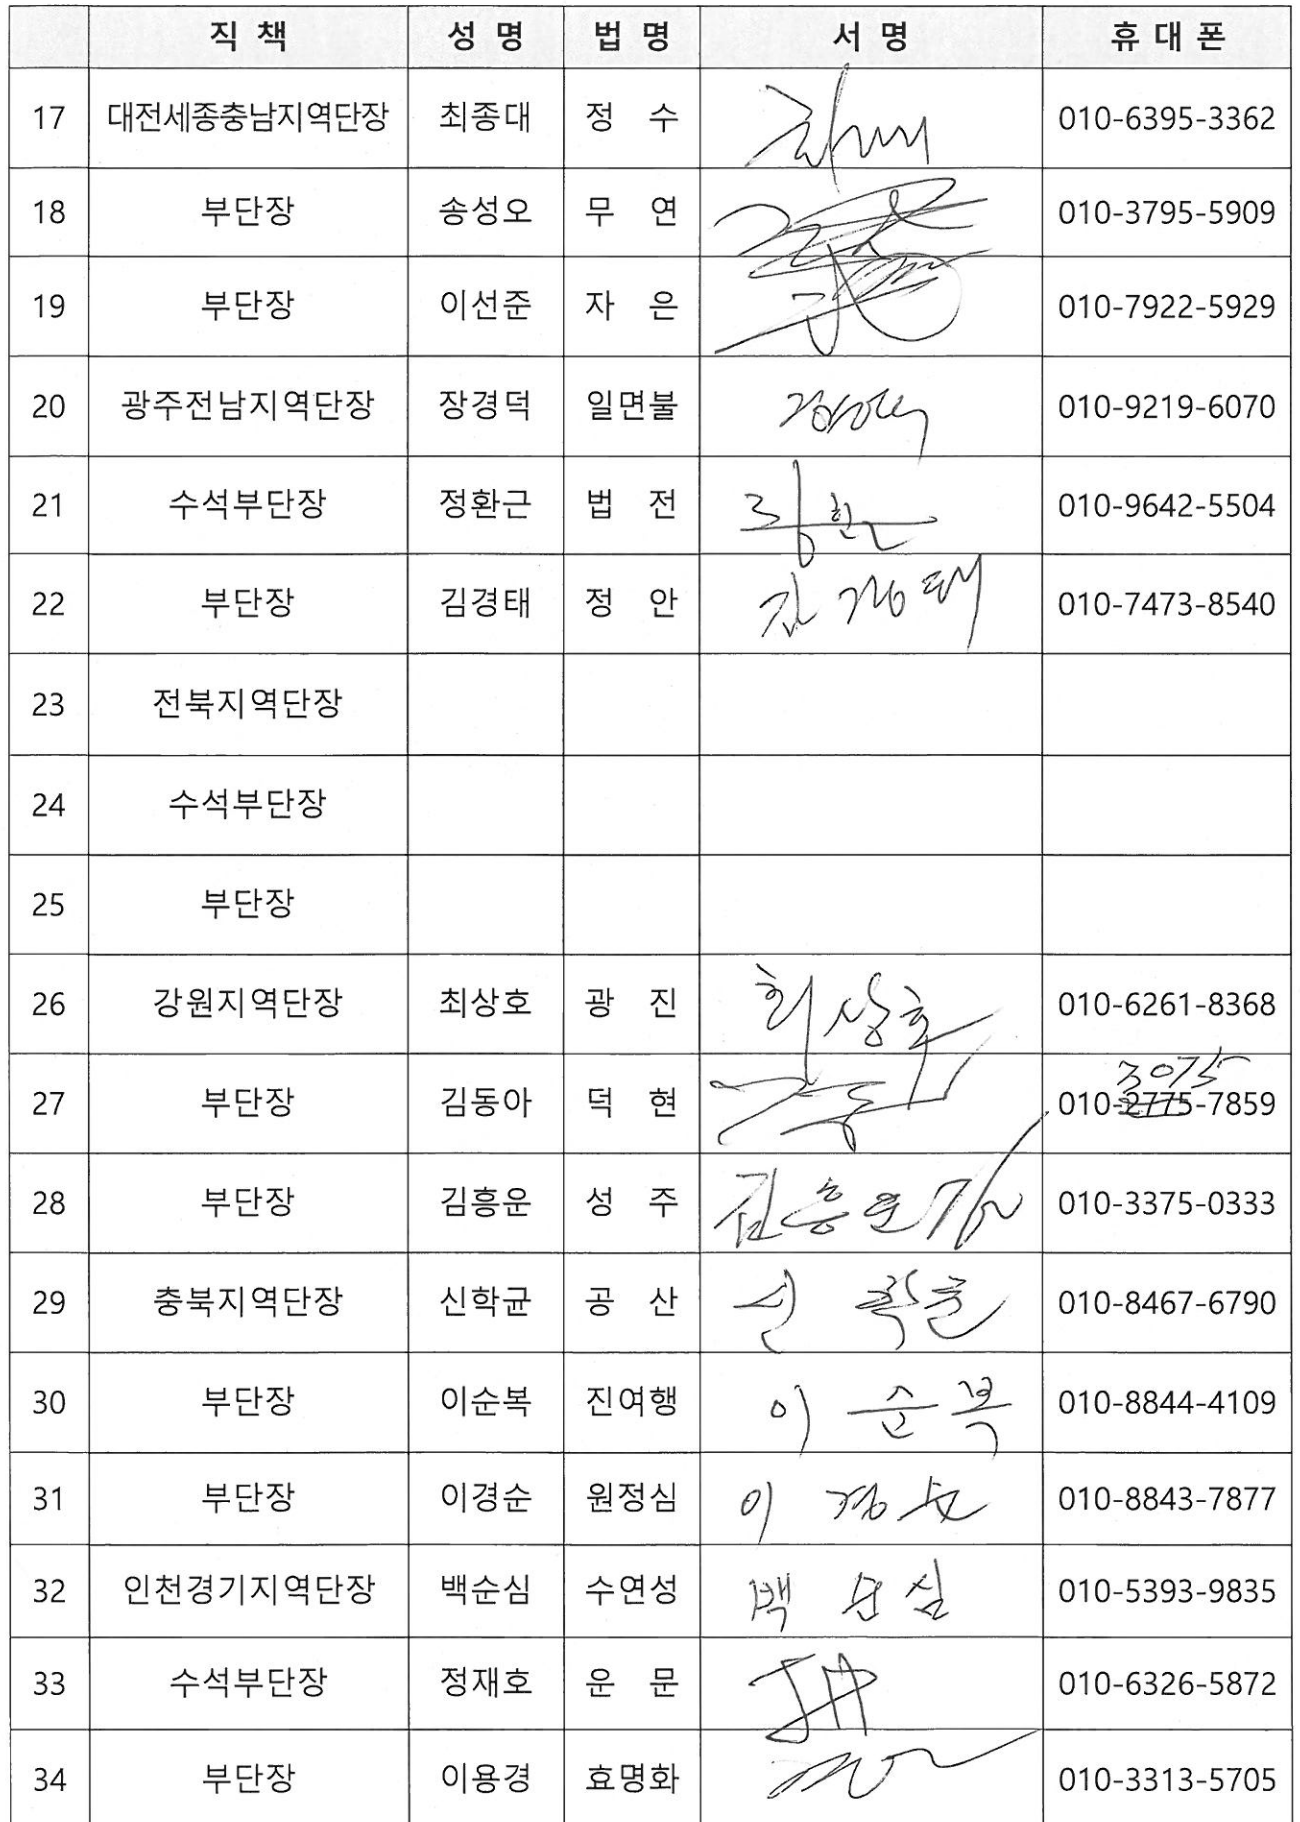 직 책 성 명 법 명 서 명 휴 대 폰
17 대전세종충남지역단장 최종대 정 수 010-6395-3362
18 부단장 송성오 무 연 010-3795-5909
19 부단장 이선준 자 은 010-7922-5929
20 광주전남지역단장 장경덕 일면불 010-9219-6070
21 수석부단장 정환근 법 전 010-9642-5504
22 부단장 김경태 정 안 김경태 010-7473-8540
23 전북지역단장
24 수석부단장
25 부단장
26 강원지역단장 최상호 광 진 최상호 010-6261-8368
3075
27 부단장 김동아 덕 현 010-2775-7859
28 부단장 김흥운 성 주 김흥운 010-3375-0333
29 충북지역단장 신학균 공 산 신 학균 010-8467-6790
30 부단장 이순복 진여행 이 순복 010-8844-4109
31 부단장 이경순 원정심 이 경순 010-8843-7877
32 인천경기지역단장 백순심 수연성 백 순심 010-5393-9835
33 수석부단장 정재호 운 문 010-6326-5872
34 부단장 이용경 효명화 010-3313-5705